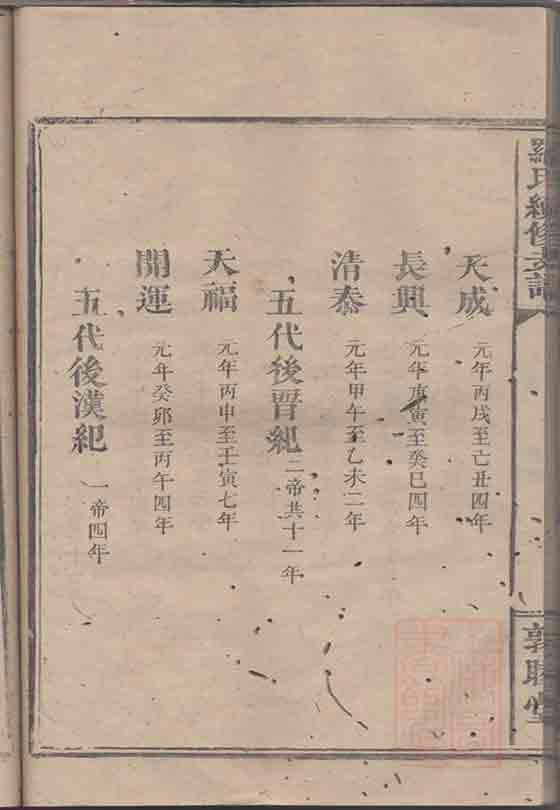 羅氏續修支譜
敦睦堂
天成 元年丙戌至己丑四年
長興 元年庚寅至癸巳四年
清泰 元年甲午至乙未二年
五代後晋紀 二帝共十一年
天福 元年丙申至壬寅七年
開運 元年癸卯至丙午四年
五代後漢紀 一帝四年